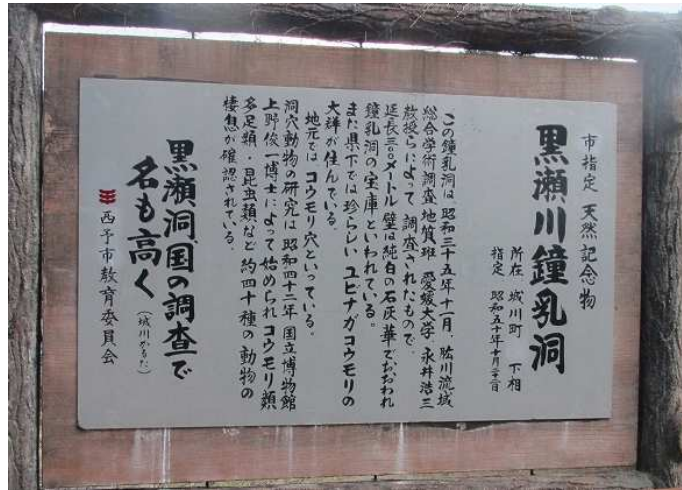 市指定 天然記念物
黒瀬川鐘乳洞
所在 城川町 下相
指定 昭和五十年十月二十二日
この鐘乳洞は、昭和三十五年十一月、肱川流域
総合学術調査地質班 愛媛大学 永井浩三
教授らによって 調査されたもので、
延長三〇〇メートル 壁は純白の石灰華でおおわれ
鐘乳洞の宝庫といわれている。
また県下では珍らしい ユビナガコウモリの
大群が住んでいる。
地元では コウモリ穴といっている。
洞穴動物の研究は 昭和四十二年 国立博物館
上野俊一博士によって始められ コウモリ類
多足類・昆虫類など 約四十種の 動物の
棲息が確認されている。
黒瀬洞国の調査で
名も高く (城川かるた)
西予市教育委員会